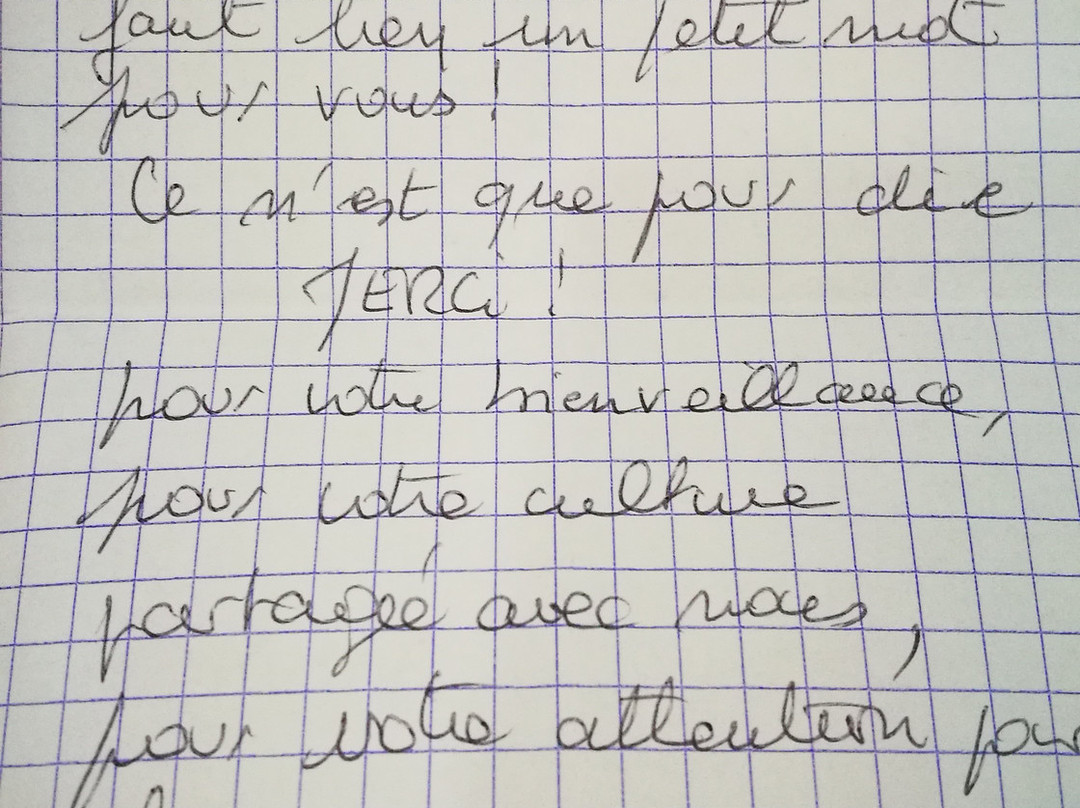 faut bien un petit mot
pour vous !
Ce n'est que pour dire
MERCi !
pour votre bienveillance,
pour votre culture
partagée avec nous,
pour votre attention pour